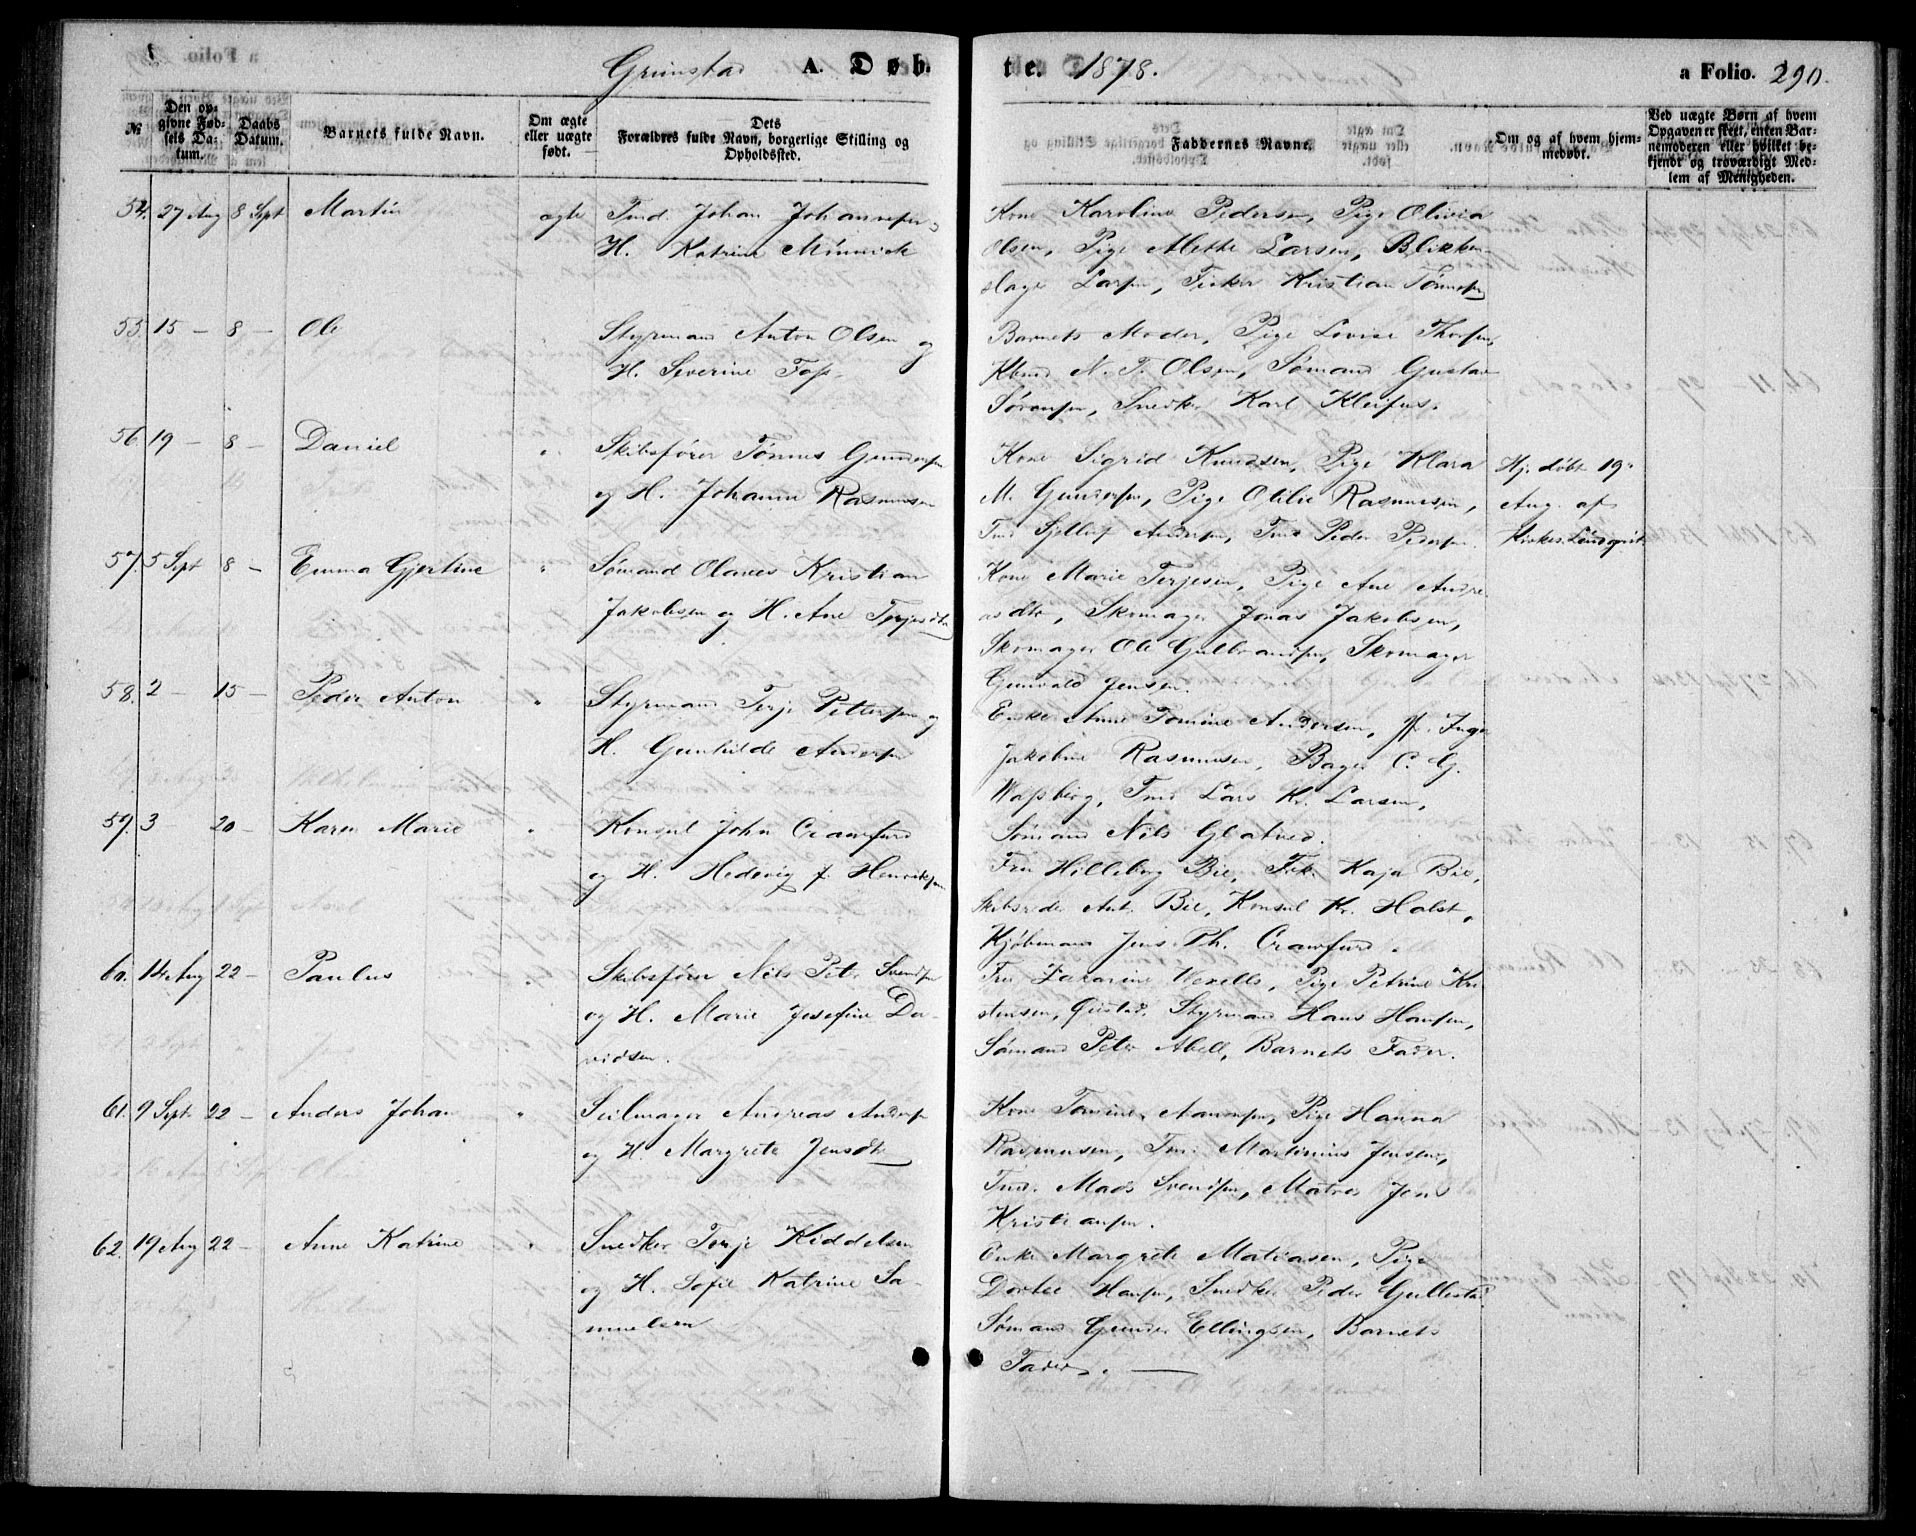 Grimstad A. Døbte. 1878. a Folio. 290.
№
Den opgivne Fødsels Datum.
Daabs Datum.
Barnets fulde Navn.
Om ægte eller uægte født.
Dets Forældres fulde Navn, borgerlige Stilling og Opholdssted.
Faddernes Navne.
Om og af hvem hjemmedøbt.
Ved uægte Børn af hvem Opgaven er skeet, enten Barnemoderen eller hvilket bekjendt og troværdigt Medlem af Menigheden.
54. 27 Aug 8 Sept Martin ægte Tmd. Johan Johannesen
H. Katrine
Kone Karoline Pedersen, Pige Olivia
Olsen, Pige Alette Larsen, Blikken
slager Larsen, Fisker Kristian Tønnesen
55. 15 – 8 – Ole Styrmand Anton Olsen og
H. Severine Foss.
Barnets Moder, Pige Lovise Thorsen,
Kbmd N. T. Olsen, Sømand Gustav
Sørensen, Snedker Karl
56. 19 – 8 – Daniel " Skibsfører Tønnes Gundersen
og H. Johanne Rasmussen
Kone Sigrid Knudsen, Pige Klara
M. Gundersen, Pige Otilie Rasmussen,
Tmd Andersen, Tmd Peder Pedersen.
Hj. døbt 19.
Aug. af
Kirkes. Lindqvist
57. 5 Sept 8 – Emma Gjertine " Sømand Olaves Kristian
Jakobsen og H. Ane Terjesdtr
Kone Marie Terjesen, Pige Ane Andre
asdtr, Skomager Jonas Jakobsen,
Skomager Ole Gulbrandsen, Skomager
Gunvald Jensen.
58. 2 – 15 – Peder Anton " Styrmand Terje Pettersen og
H. Gunhilde Andersen
Enke Anne Tomine Andersen, Inger
Jakobine Rasmussen, Bager C. G.
Wassberg, Tmd Lars Kr. Larsen,
Sømand Nils
59. 3 20 – Karen Marie " Konsul John Crawfurd
og H. Hedevig f. Henriksen
Fru Hilleborg Bie, Frk. Kaja Bie,
Skibsreder Ant. Bie, Konsul Kr. Holst,
Kjøbmand Jens Th. Crawfurd.
60. 14 Aug 22 – Paulus " Skibsfører Nils Peter Svendsen
og H. Marie Josefine Da-
vidsen.
Fru Zakarine Wexells, Pige Petrine Kri
stensen, Styrmand Hans Hansen,
Sømand Peter Abell, Barnets Fader.
61. 9 Sept 22 – Anders Johan " Seilmager Andreas Andersen
og H. Margrete Jensdtr
Kone Tomine Aanonsen, Pige Hanna
Rasmussen, Tmd. Martinius Jensen,
Tmd. Mads Svendsen, Matros Jens
Kristiansen.
62. 19 Aug 22 – Anne Katrine " Snedker Terje Kiddelsen
og H. Sofie Katrine Sa-
muelsen
Enke Margrete Matiasen, Pige
Dortea Hansen, Snedker Peder Gullestad
Sømand Gunder Ellingsen, Barnets
Fader. —